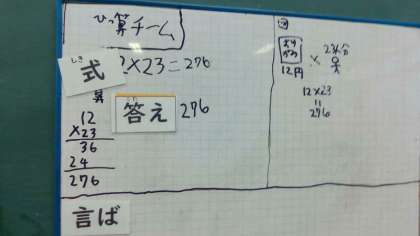 ひっ算チーム
しき
式
12×23=276
算
12
×23
36
24
276
答え 276
言ば
おり
がみ
12円
×
23人分
12×23
=
276